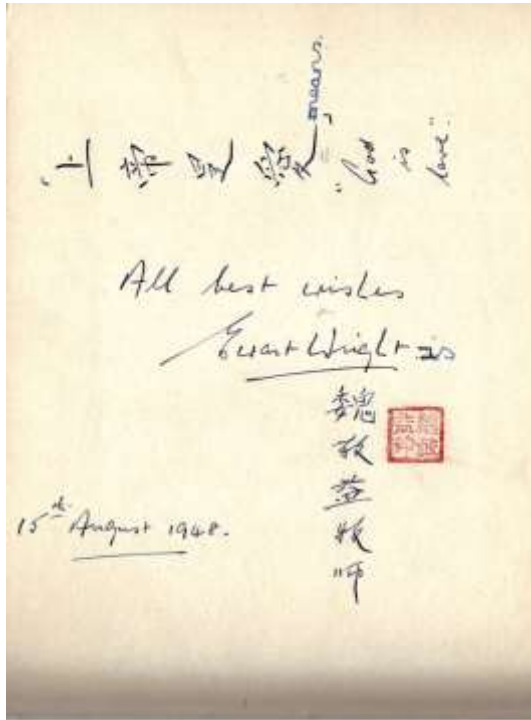 "上帝是愛" means
"God
is
love".
All best wishes
Ewart Wright is
魏敬益牧師
15th August 1948.